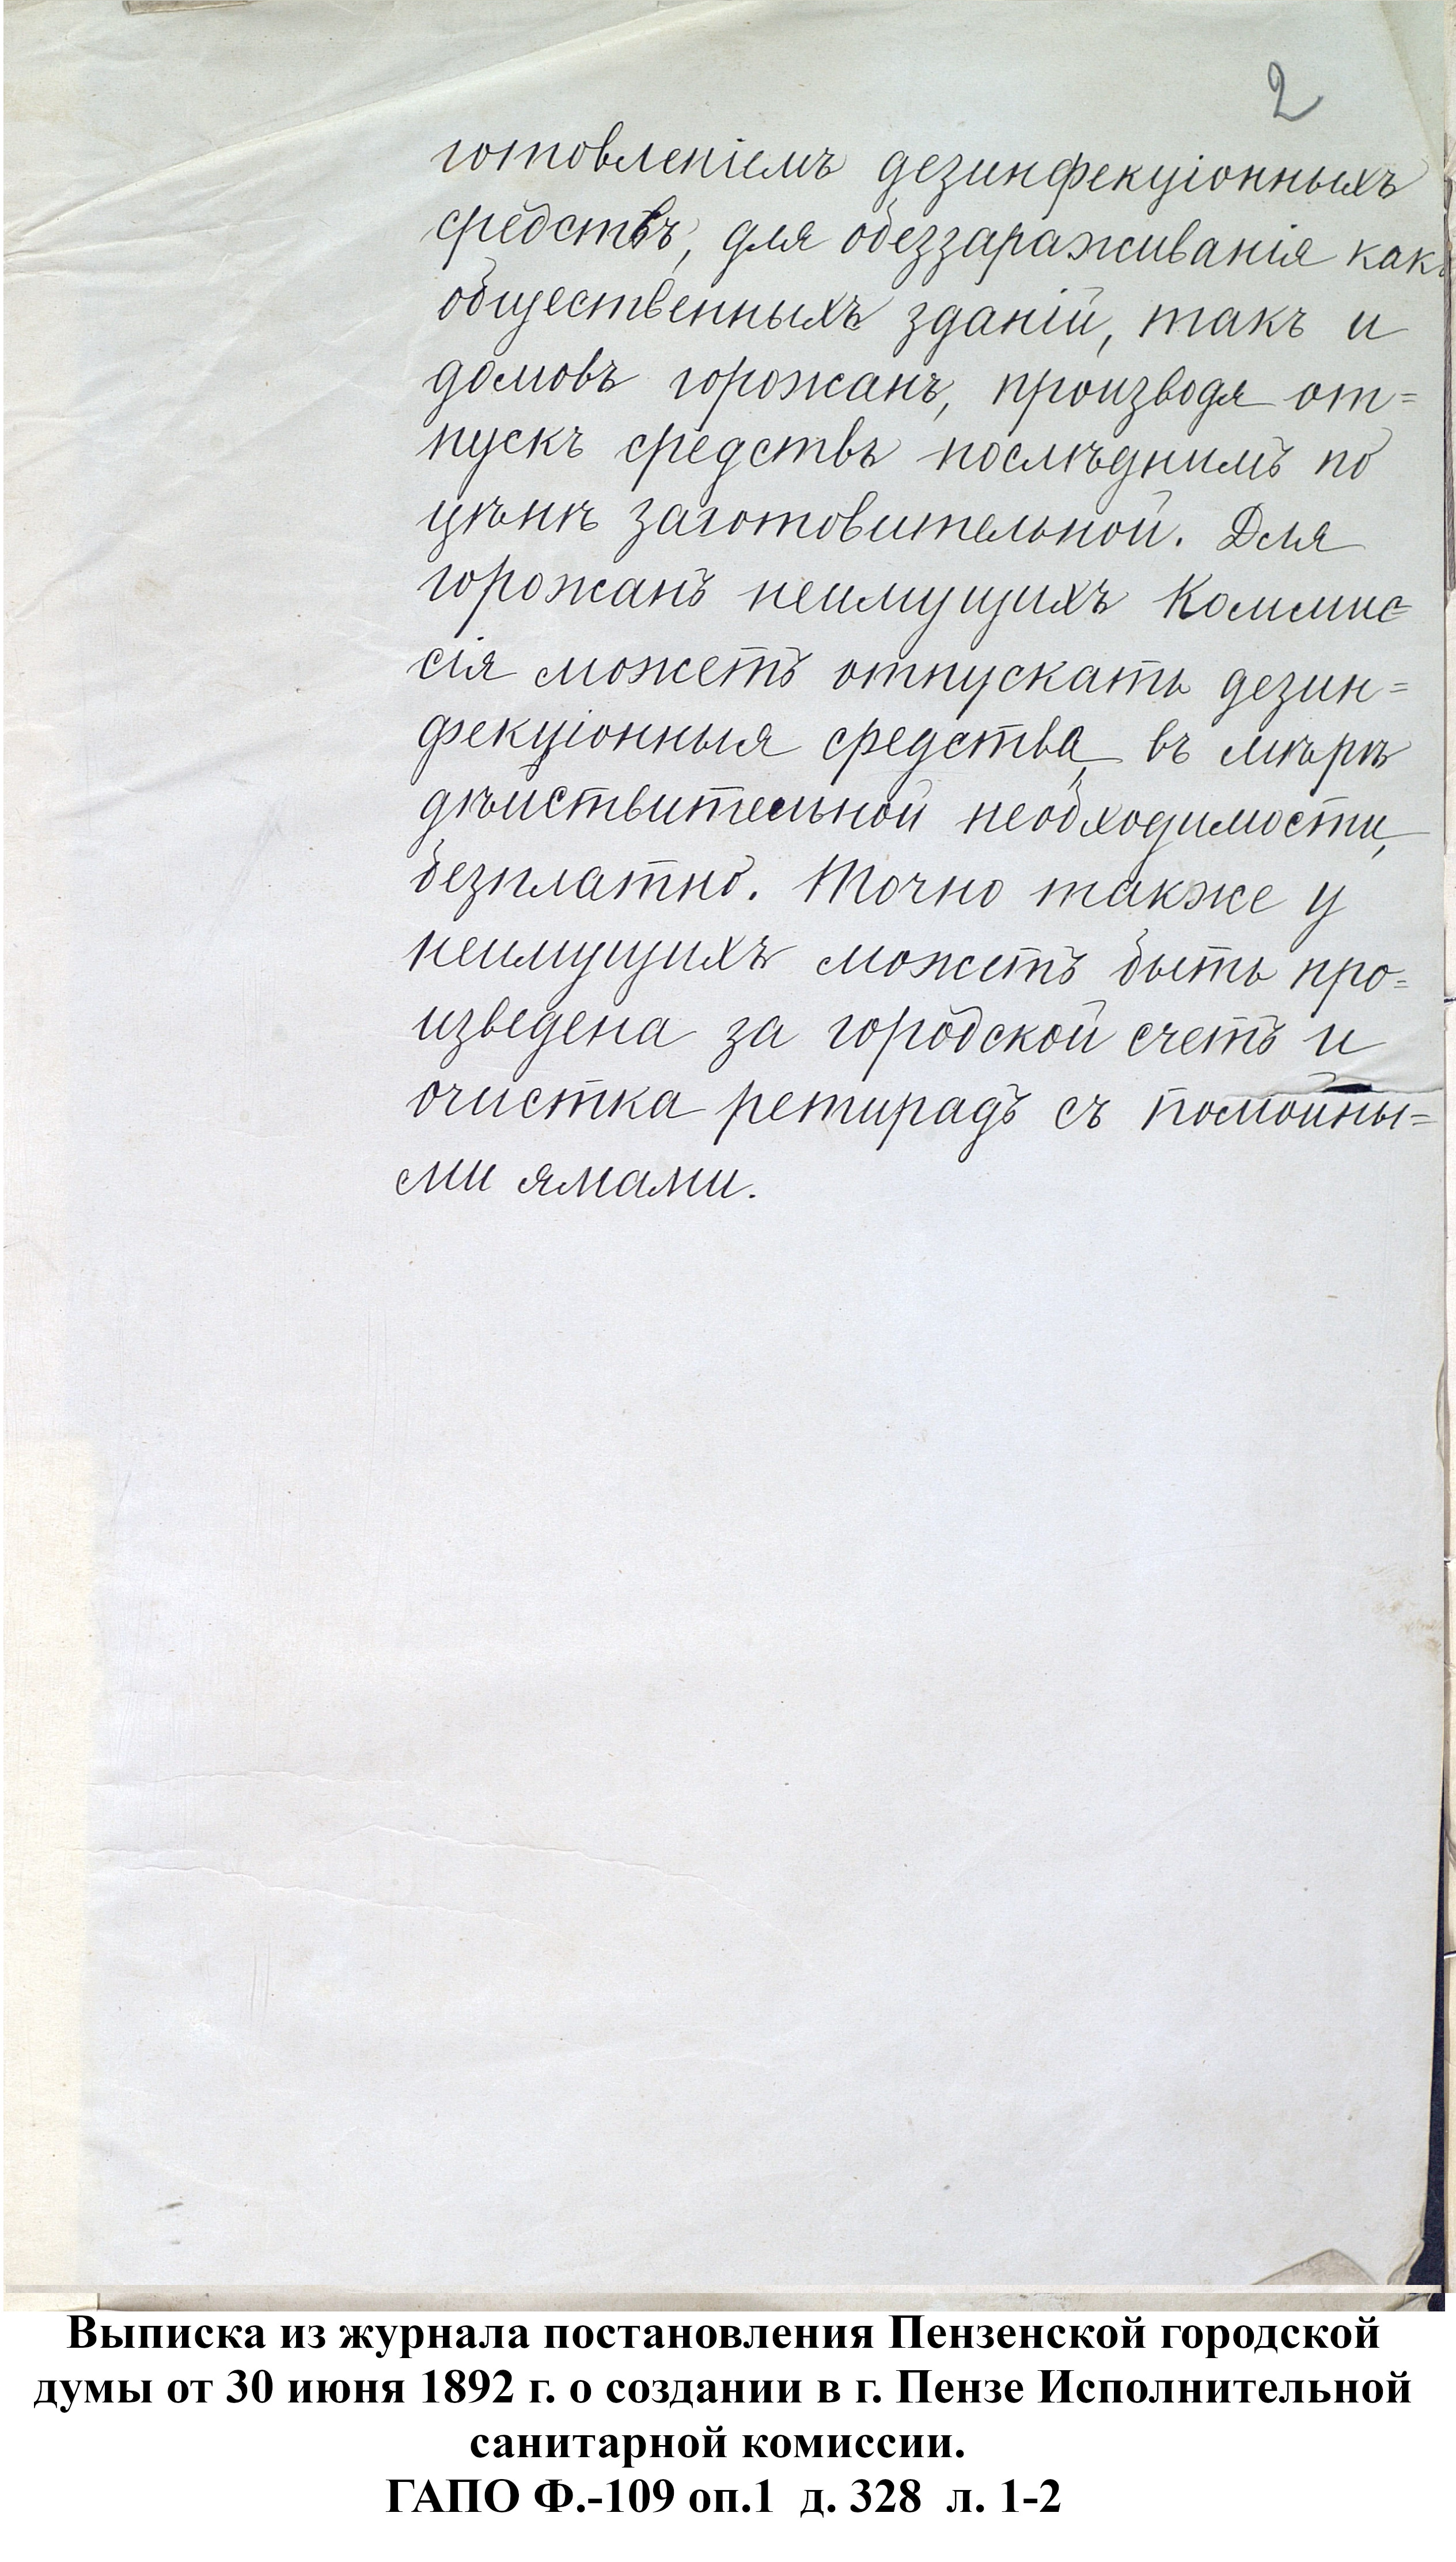 2
готовленіемъ дезинфекціонныхъ
средствъ, для обеззараживанія какъ
общественныхъ зданій, такъ и
домовъ горожанъ, производя от=
пускъ средствъ послѣднимъ по
цѣнѣ заготовительной. Для
горожанъ неимущихъ Коммис=
сія можетъ отпускать дезин=
фекціонныя средства, въ мѣрѣ
дѣйствительной необходимости,
безплатно. Точно также у
неимущихъ можетъ быть про=
изведена за городской счетъ и
очистка ретирадъ съ помойны=
ми ямами.
Выписка из журнала постановления Пензенской городской
думы от 30 июня 1892 г. о создании в г. Пензе Исполнительной
санитарной комиссии.
ГАПО Ф.-109 оп.1 д. 328 л. 1-2